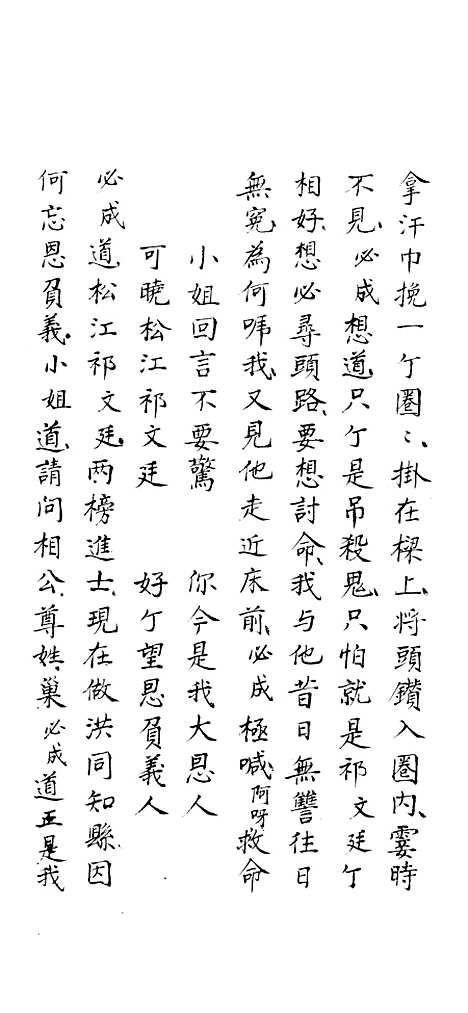 拿汗巾挽一个圈〻、掛在樑上、将頭鑽入圈内、霎時
不見、必成想道、只个是吊殺鬼、只怕就是祁文廷个
相好、想必尋頭路、要想討命、我与他昔日無讐往日
無寃、為何唬我、又見他走近床前、必成極喊、阿呀救命
小姐回言不要驚　你今是我大恩人
可曉松江祁文廷　好个望恩負義人
必成道、松江祁文廷、两榜進士、現在做洪同知縣、因
何忘恩負義、小姐道、請问相公、尊姓、巢必成道正是我